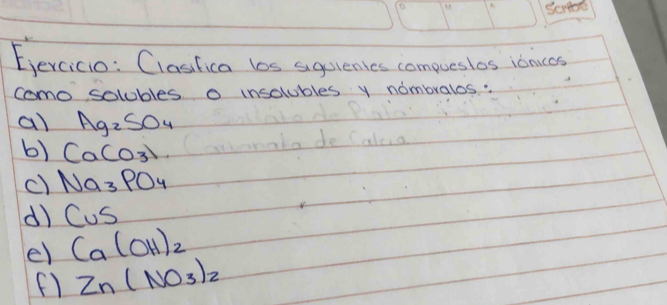 Scribe
Ejercicio: Clasifica los siguientes compuestos iónicos
como solubles o insolubles y nómbralos:
a) Ag2SO4
b) CaCO3
c) Na3PO4
d) CuS
e) Ca(OH)2
f) Zn(NO3)2